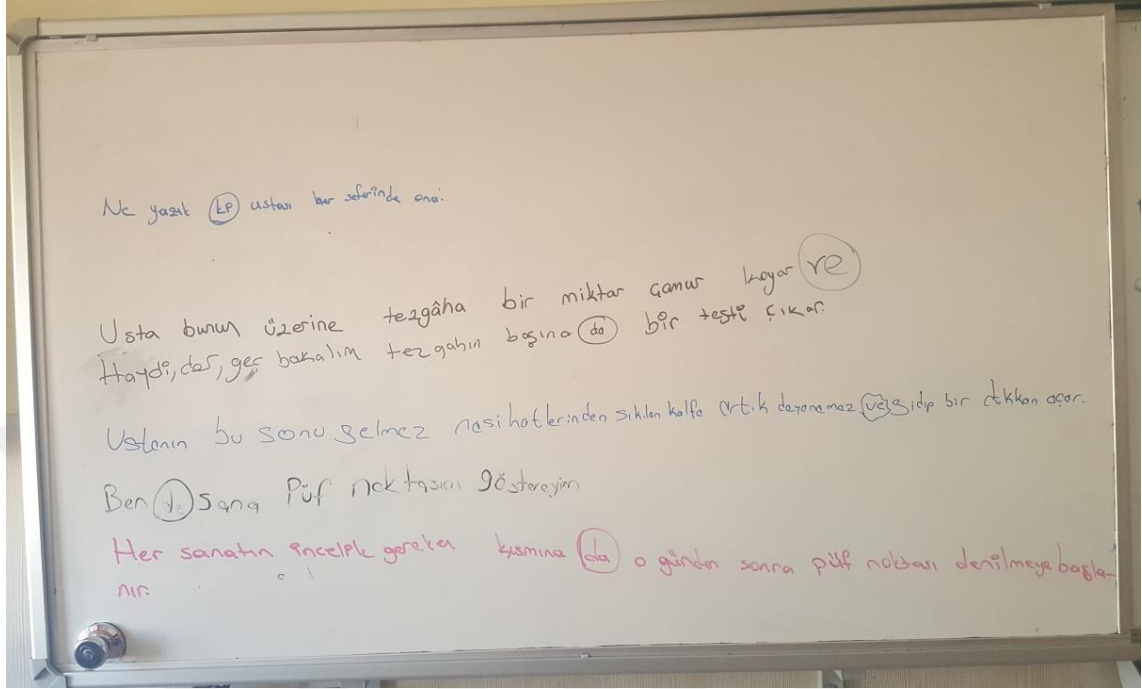 Ne yazık ki ustası her seferinde ona:
Usta bunun üzerine tezgâha bir miktar çamur koyar ve
Haydi, geç bakalım tezgahın başına da bir testi çıkar.
Ustanın bu sonu gelmez nasihatlerinden sıkılan kalfa artık dayanamaz ve gidip bir dükkan açar.
Ben de sana Püf noktasını göstereyim
Her sanatın incelik gereken kısmına da o günden sonra püf noktası denilmeye başla-
nır.